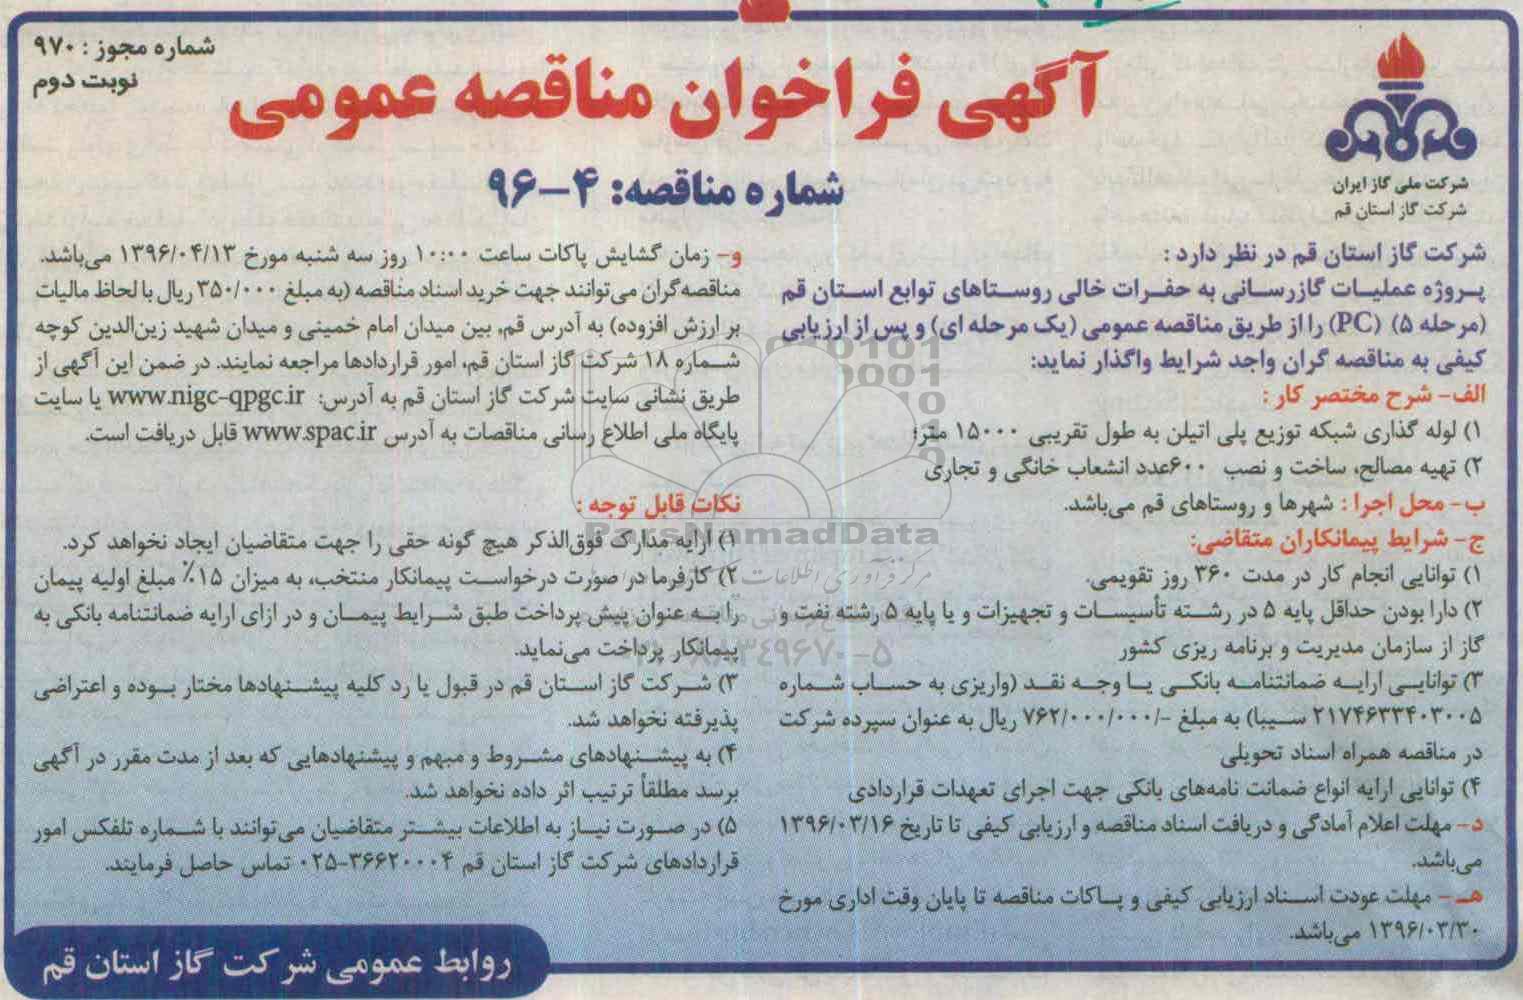 شماره مجوز : ۹۷۰
نوبت دوم
آگهی فراخوان مناقصه عمومی
شماره مناقصه: ۴-۹۶
شرکت ملی گاز ایران
شرکت گاز استان قم
شرکت گاز استان قم در نظر دارد :
پروژه عملیات گازرسانی به حفرات خالی روستاهای توابع استان قم
(مرحله ۵) (PC) را از طریق مناقصه عمومی (یک مرحله ای) و پس از ارزیابی
کیفی به مناقصه گران واجد شرایط واگذار نماید:
الف- شرح مختصر کار :
۱) لوله گذاری شبکه توزیع پلی اتیلن به طول تقریبی ۱۵۰۰۰ متر؛
۲) تهیه مصالح، ساخت و نصب ۶۰۰عدد انشعاب خانگی و تجاری
ب- محل اجرا : شهرها و روستاهای قم می‌باشد.
ج- شرایط پیمانکاران متقاضی:
۱) توانایی انجام کار در مدت ۳۶۰ روز تقویمی.
۲) دارا بودن حداقل پایه ۵ در رشته تأسیسات و تجهیزات و یا پایه ۵ رشته نفت و
گاز از سازمان مدیریت و برنامه ریزی کشور
۳) توانایی ارایه ضمانتنامه بانکی یا وجه نقد (واریزی به حساب شماره
۲۱۷۴۶۳۳۴۰۳۰۰۵ سیبا) به مبلغ -/۷۶۲/۰۰۰/۰۰۰ ریال به عنوان سپرده شرکت
در مناقصه همراه اسناد تحویلی
۴) توانایی ارایه انواع ضمانت نامه‌های بانکی جهت اجرای تعهدات قراردادی
د- مهلت اعلام آمادگی و دریافت اسناد مناقصه و ارزیابی کیفی تا تاریخ ۱۳۹۶/۰۳/۱۶
می‌باشد.
هـ - مهلت عودت اسناد ارزیابی کیفی و پاکات مناقصه تا پایان وقت اداری مورخ
۱۳۹۶/۰۳/۳۰ می‌باشد.
و- زمان گشایش پاکات ساعت ۱۰:۰۰ روز سه شنبه مورخ ۱۳۹۶/۰۴/۱۳ می‌باشد.
مناقصه‌گران می‌توانند جهت خرید اسناد مناقصه (به مبلغ ۳۵۰/۰۰۰ ریال با لحاظ مالیات
بر ارزش افزوده) به آدرس قم، بین میدان امام خمینی و میدان شهید زین‌الدین کوچه
شماره ۱۸ شرکت گاز استان قم، امور قراردادها مراجعه نمایند. در ضمن این آگهی از
طریق نشانی سایت شرکت گاز استان قم به آدرس: www.nigc-qpgc.ir یا سایت
پایگاه ملی اطلاع رسانی مناقصات به آدرس www.spac.ir قابل دریافت است.
نکات قابل توجه :
۱) ارایه مدارک فوق‌الذکر هیچ گونه حقی را جهت متقاضیان ایجاد نخواهد کرد.
۲) کارفرما در صورت درخواست پیمانکار منتخب، به میزان ۱۵٪ مبلغ اولیه پیمان
را به عنوان پیش پرداخت طبق شرایط پیمان و در ازای ارایه ضمانتنامه بانکی به
پیمانکار پرداخت می‌نماید.
۳) شرکت گاز استان قم در قبول یا رد کلیه پیشنهادها مختار بوده و اعتراضی
پذیرفته نخواهد شد.
۴) به پیشنهادهای مشروط و مبهم و پیشنهادهایی که بعد از مدت مقرر در آگهی
برسد مطلقاً ترتیب اثر داده نخواهد شد.
۵) در صورت نیاز به اطلاعات بیشتر متقاضیان می‌توانند با شماره تلفکس امور
قراردادهای شرکت گاز استان قم ۳۶۶۲۰۰۰۴-۰۲۵ تماس حاصل فرمایند.
روابط عمومی شرکت گاز استان قم
ParsNamadData
مرکز فرآوری اطلاعات